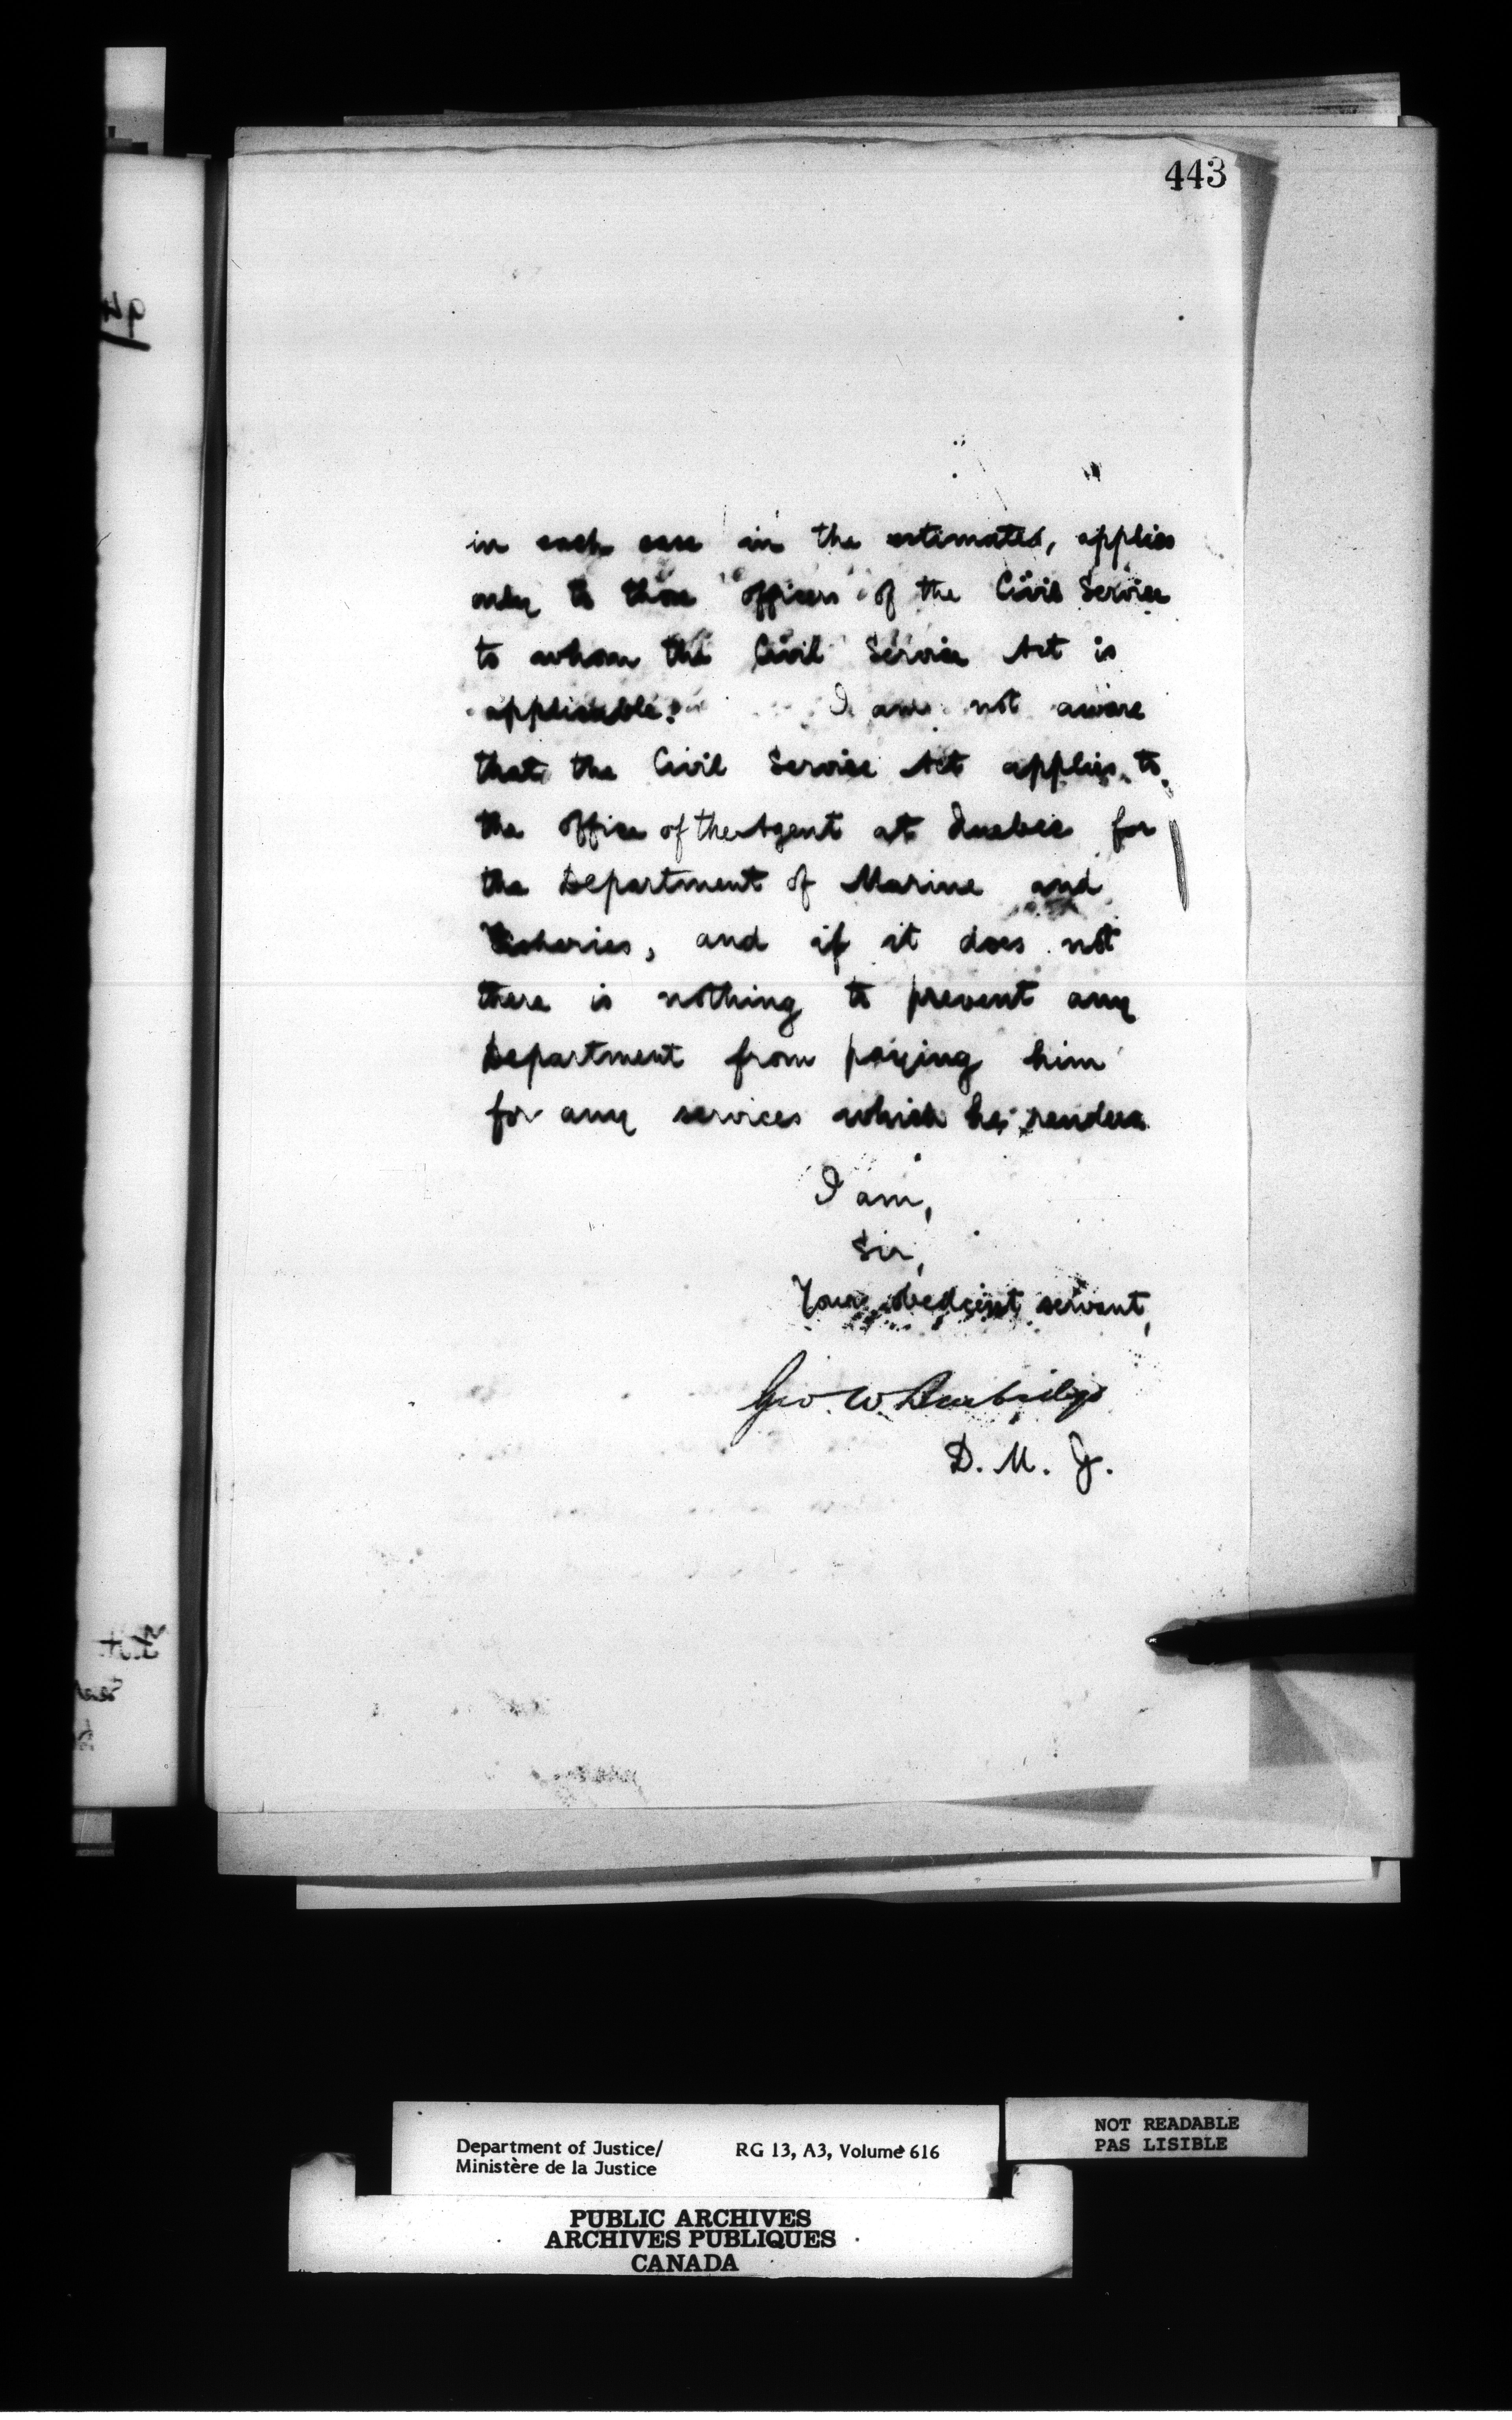 443
in each case in the estimates, applies
only to those officers of the Civil Service
to whom the Civil Service Act is
applicable. I am not aware
that the Civil Service Act applies to
the office of the Agent at Quebec for
the Department of Marine and
Fisheries, and if it does not
there is nothing to prevent any
Department from paying him
for any services which he renders
I am,
Sir,
Your obedient servant,
Geo. W Burbidge
D. M. J.
NOT READABLE
PAS LISIBLE
Department of Justice/ RG 13, A3, Volume 616
Ministère de la Justice
PUBLIC ARCHIVES
ARCHIVES PUBLIQUES
CANADA